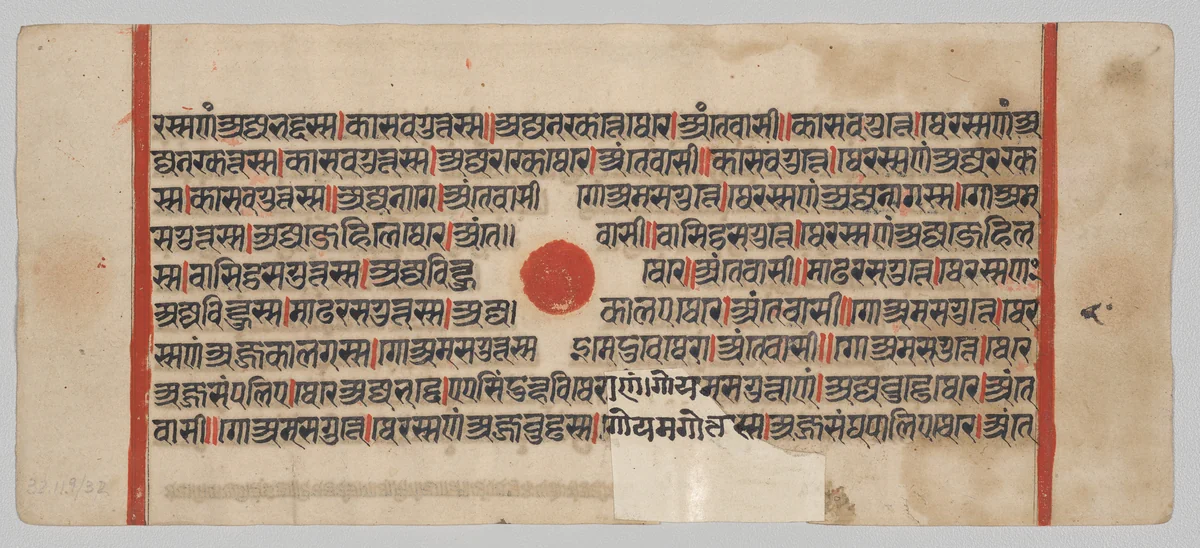 रस्सणं अज्जभद्दस्स।कासवगुत्तस्स॥अज्जनरकत्ते थेरे।अंतेवासी॥कासवगुत्ते।थेरस्सणं अ
ज्जनरकत्तस्स।कासवगुत्तस्स।अज्जररके थेरे।अंतेवासी॥कासवगुत्ते।थेरस्सणं अज्जररक
स्स।कासवगुत्तस्स॥अज्जनागे।अंतेवासी गोअमसगुत्ते।थेरस्सणं अज्जनागस्स।गोअम
सगुत्तस्स।अज्जजेहिले थेरे।अंते॥ वासी॥वासिट्ठसगुत्ते।थेरस्सणं अज्जजेहिल
स्स।वासिट्ठसगुत्तस्स।अज्जविण्हू थेरे॥अंतेवासी॥माढरसगुत्ते।थेरस्सणं
अज्जविण्हुस्स।माढरसगुत्तस्स।अज्ज। कालए थेरे।अंतेवासी॥गोअमसगुत्ते।थेर
स्सणं अज्जकालगस्स।गोअमसगुत्तस्स इमे दुवे थेरा।अंतेवासी॥गोअमसगुत्ते।थेरे
अज्जसंपलिए।थेरे अज्जभद्दे।एएसिं दुन्नवि थेराणं।गोयमसगुत्ताणं।अज्जवुड्ढे थेरे।अंते
वासी॥गोअमसगुत्ते।थेरस्सणं अज्जवुड्ढस्स।गोयमगोत्तस्स।अज्जसंघपालिए थेरे।अंते